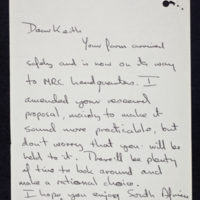 Dear Keith
Your form arrived
safely and is now on its way
to MRC headquarters. I
amended your research
proposal, mainly to make it
sound more practicable, but
don't worry that you will be
held to it. There'll be plenty
of time to look around and
make a rational choice.
I hope you enjoy South Africa